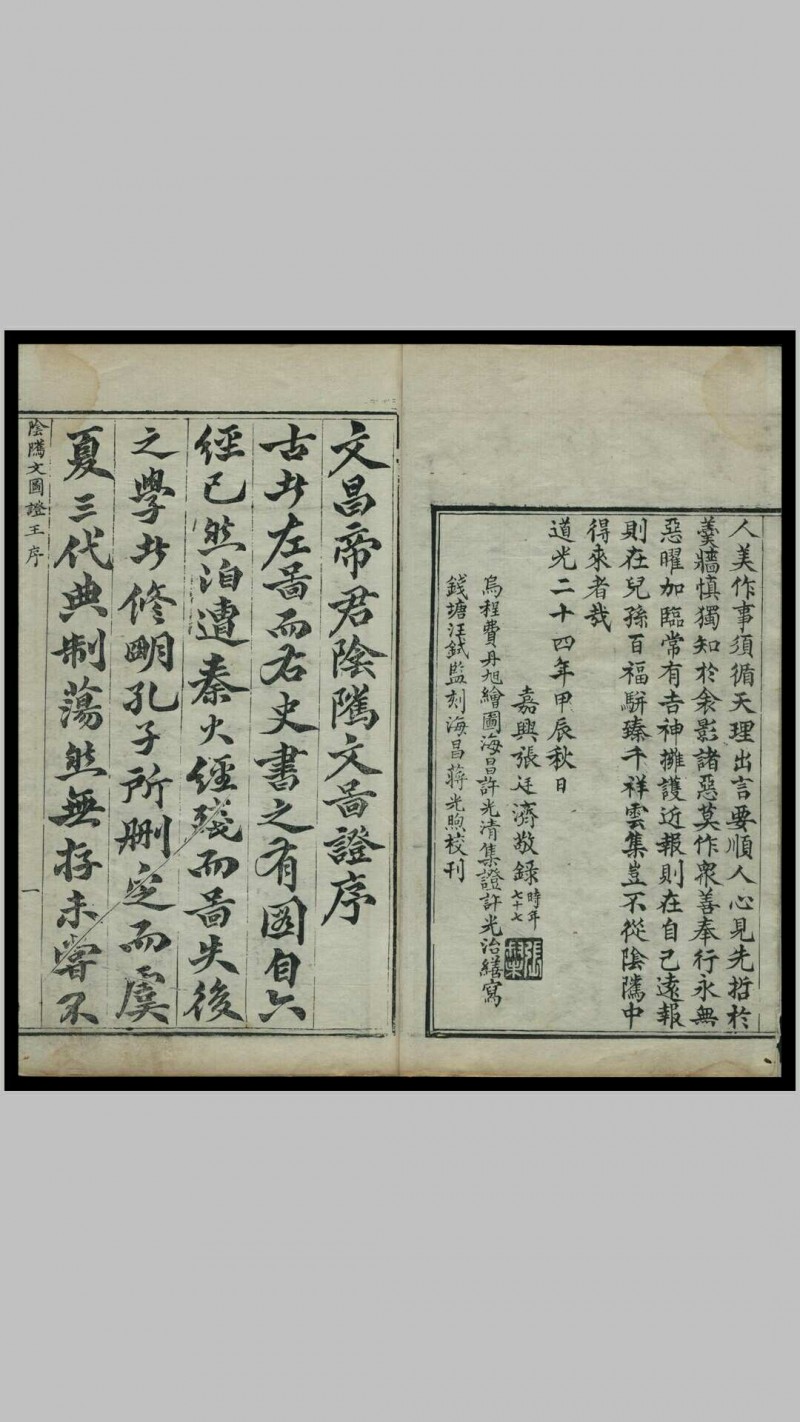 人美作事須循天理出言要順人心見先哲於
羹牆慎獨知於衾影諸惡莫作衆善奉行永無
惡曜加臨常有吉神擁護近報則在自己遠報
則在兒孫百福駢臻千祥雲集豈不從陰隲中
得來者哉
道光二十四年甲辰秋日
嘉興張廷濟敬録時年七十七
烏程費丹旭繪圖海昌許光清集證許光治繕寫
錢塘汪鉽監刻海昌蔣光煦校刊
文昌帝君陰隲文啚證序
古者左啚而右史書之有圖自六
經已然洎遭秦火經殘而啚失後
之學者修明孔子所刪定而虞
夏三代典制蕩然無存未嘗不
陰隲文圖證王序
一